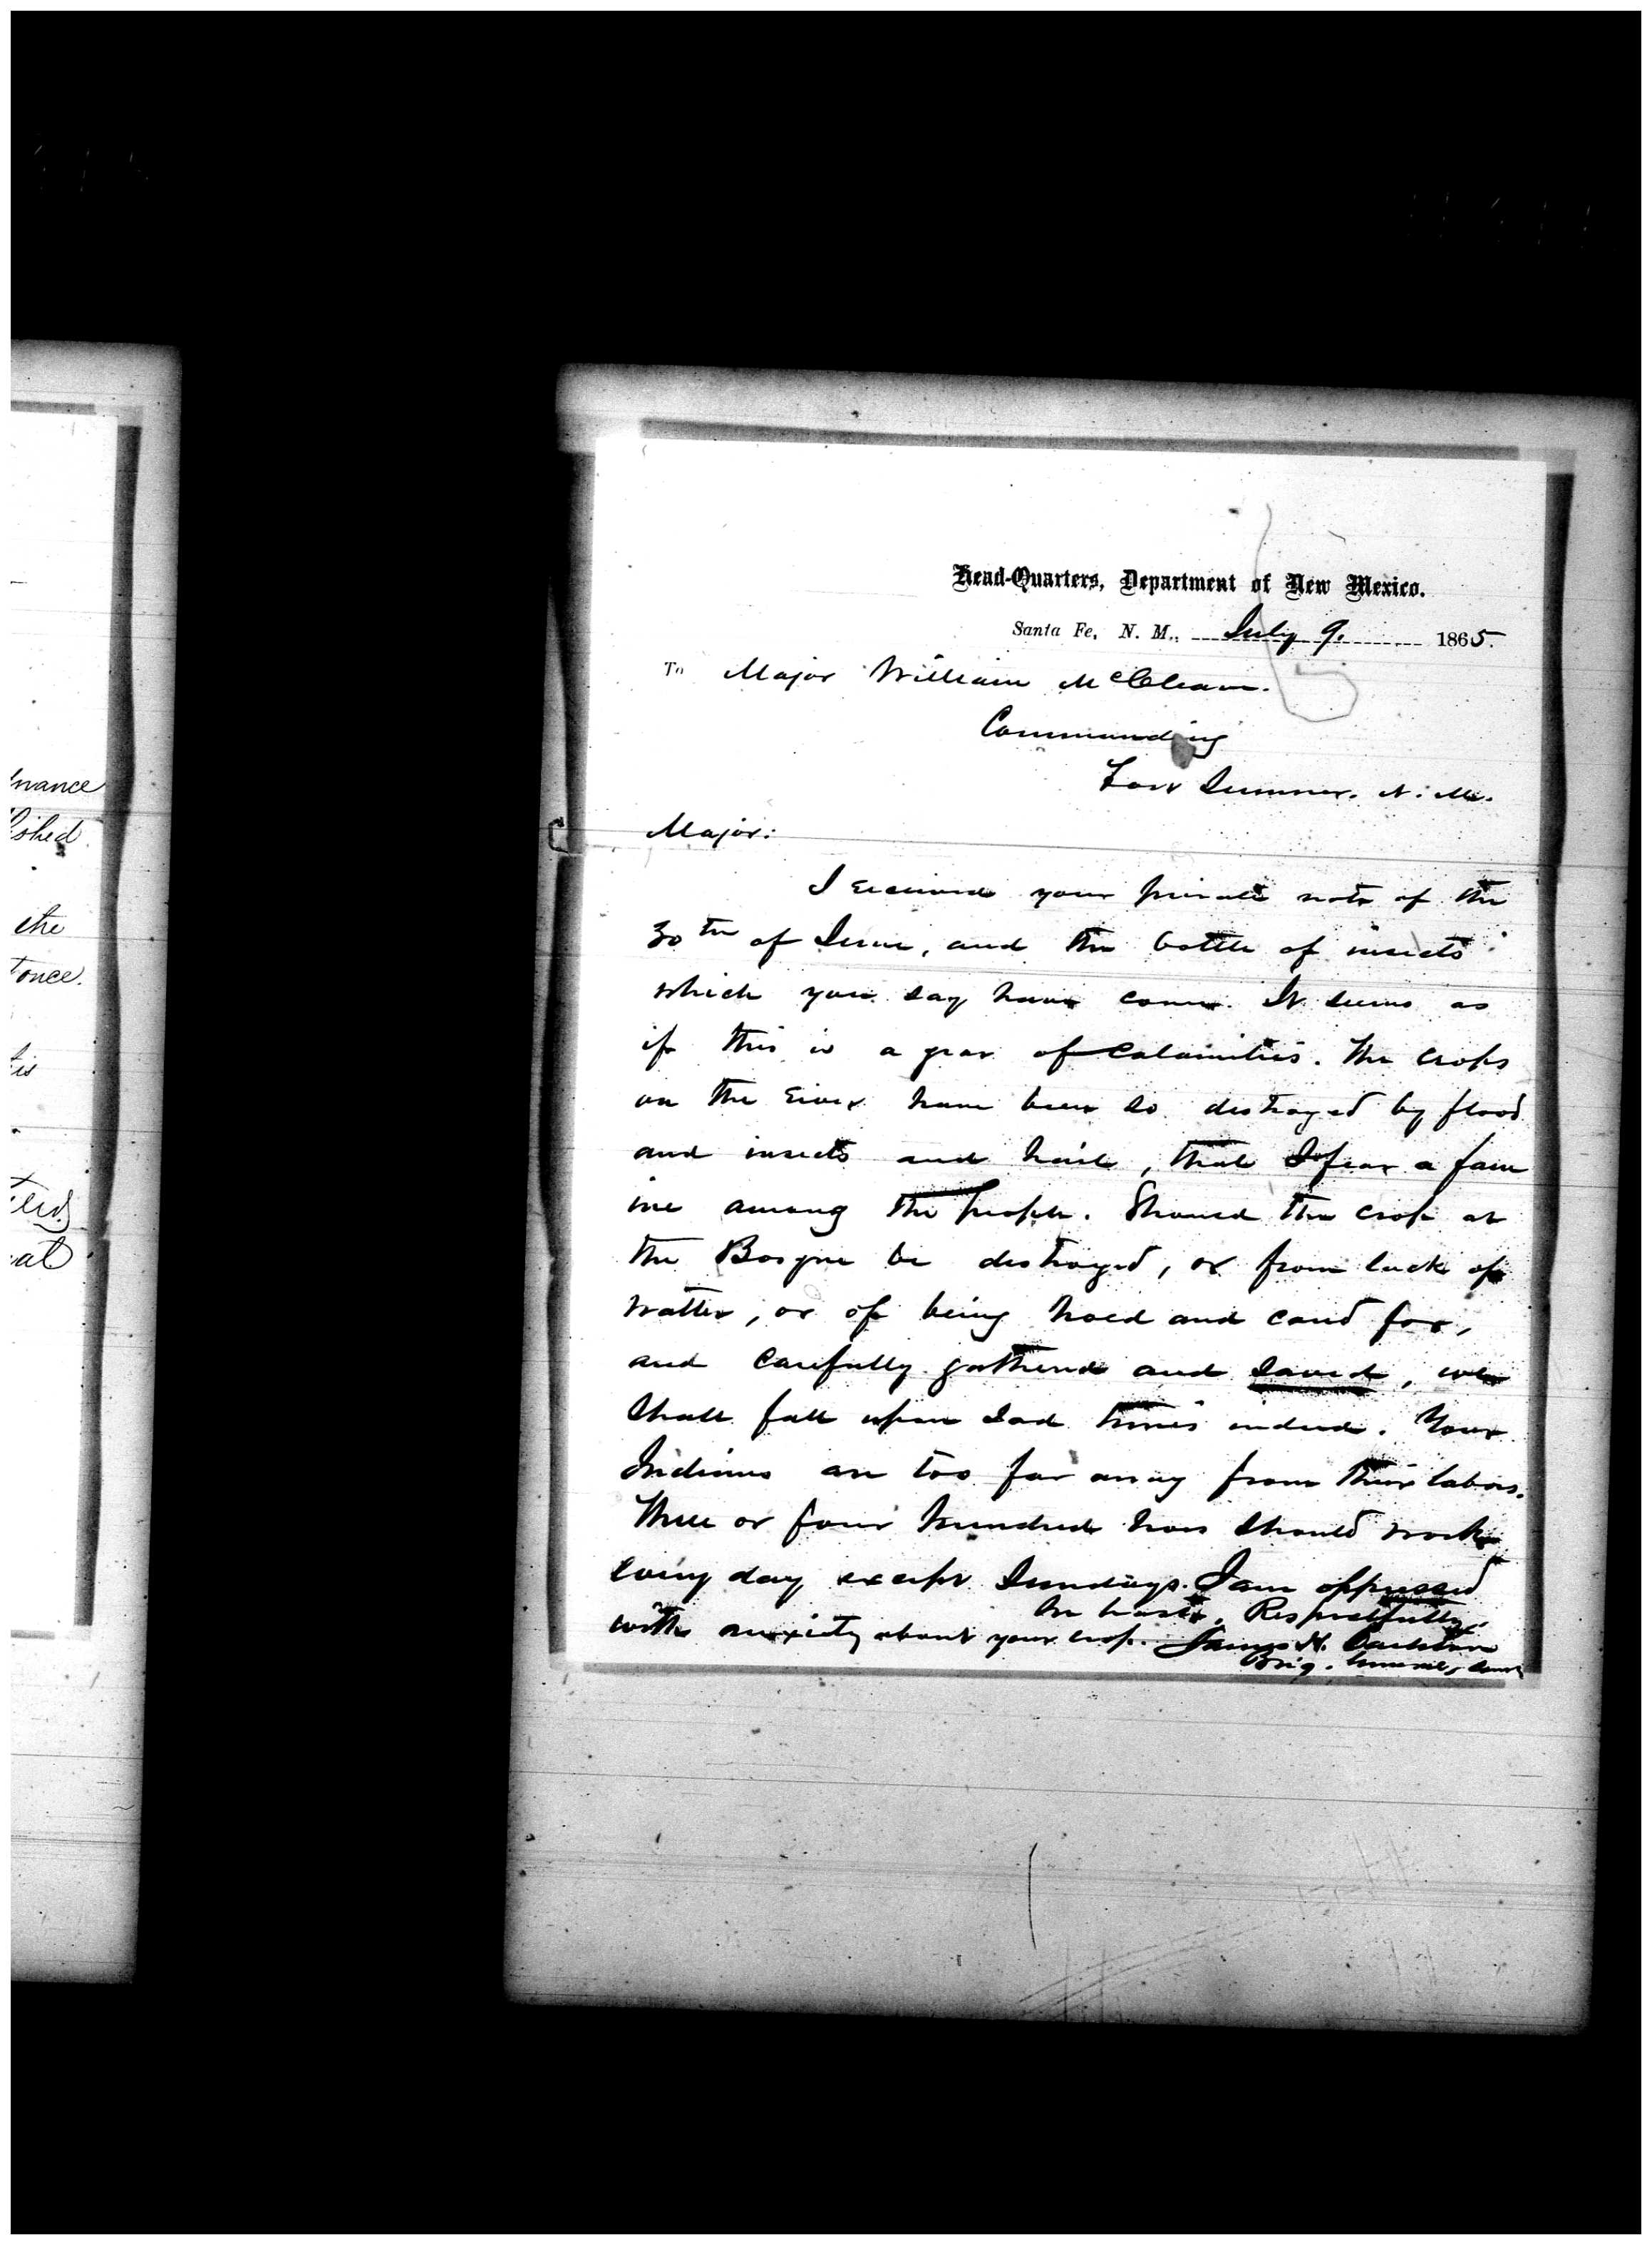 nance
lished
the
once.
tis
eat
Head-Quarters, Department of New Mexico.
Santa Fe, N. M., July 9. 1865.
To Major William McCleave.
Commanding
Fort Sumner. N. M.
Major:
I received your private note of the
30th of June, and the bottle of insects
which you say have come. It seems as
if this is a year of calamities. The crops
on the river have been so destroyed by flood
and insects and hail, that I fear a fam
ine among the people. Should the crop at
the Bosque be destroyed, or from lack of
watter, or of being hoed and cared for,
and carefully gathered and saved, we
shall fall upon sad times indeed. Your
Indians are too far away from their labors.
Three or four hundred hoes should work
every day except Sundays. I am oppressed
with anxiety about your crop.
In haste, Respectfully,
James H. Carleton
Brig. General, Comdg